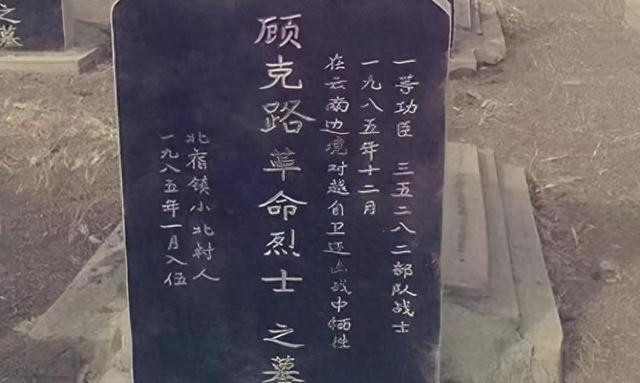 一等功臣 三五二八二部队战士
一九八五年十二月
在云南边境对越自卫还击战中牺牲
顾克路革命烈士之墓
北宿镇小北村人
一九八五年一月入伍
之墓